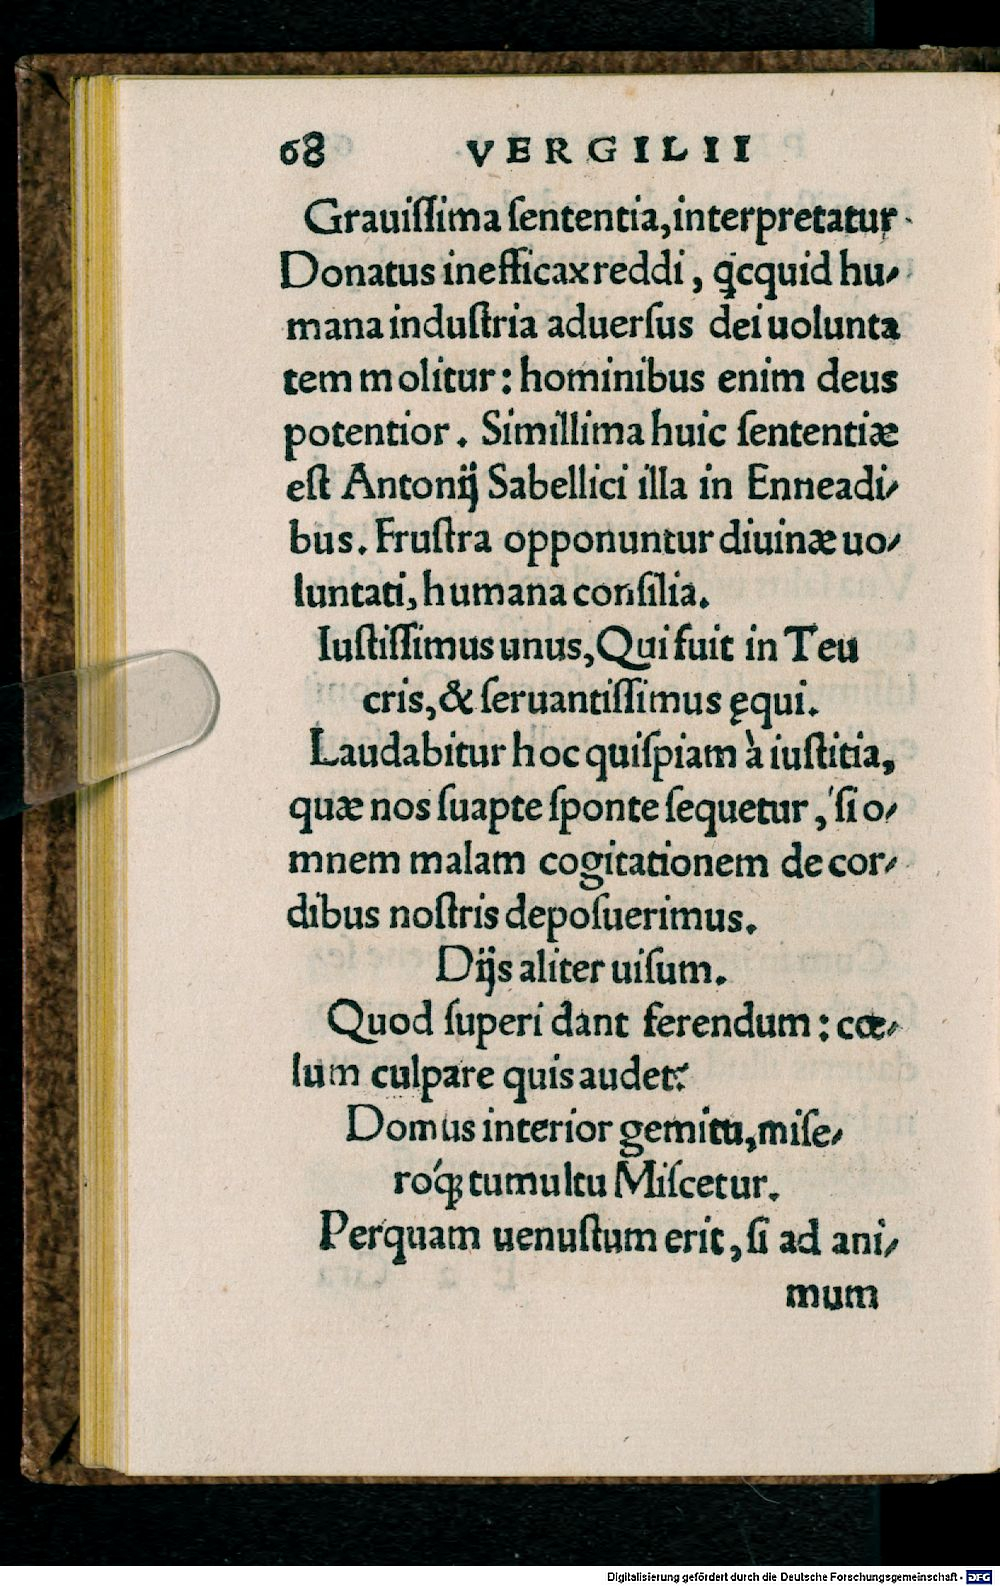 68 VERGILII
Grauiſſima ſententia, interpretatur
Donatus inefficax reddi, qͥcquid hu-
mana induſtria aduerſus dei uolunta
tem molitur: hominibus enim deus
potentior. Simillima huic ſententiæ
eſt Antonij Sabellici illa in Enneadi-
bus. Fruſtra opponuntur diuinæ uo-
luntati, humana conſilia.
Iuſtiſſimus unus, Qui fuit in Teu
cris, & ſeruantiſſimus ęqui.
Laudabitur hoc quiſpiam à iuſtitia,
quæ nos ſuapte ſponte ſequetur, ſi o-
mnem malam cogitationem de cor-
dibus noſtris depoſuerimus.
Dijs aliter uiſum.
Quod ſuperi dant ferendum: cœ-
lum culpare quis audet?
Domus interior gemitu, miſe-
róq; tumultu Miſcetur.
Perquam uenuſtum erit, ſi ad ani-
mum
Digitalisierung gefördert durch die Deutsche Forschungsgemeinschaft - DFG